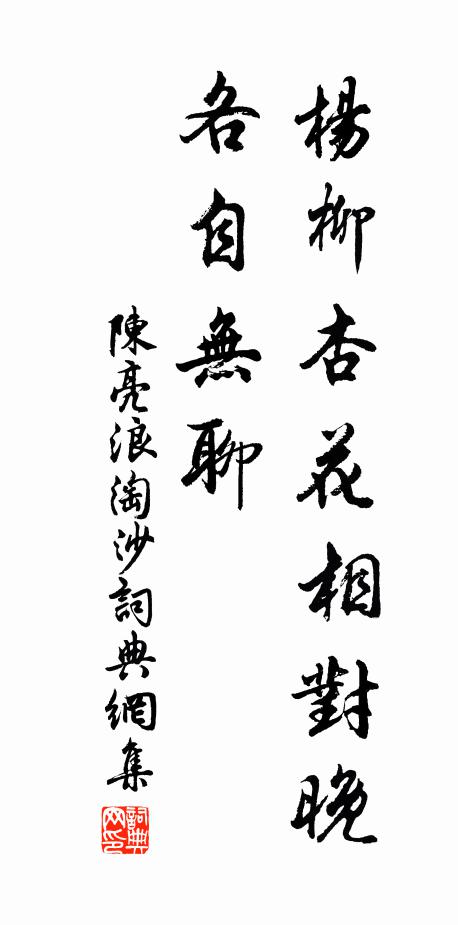 楊柳杏花相對晚
各自無聊
陳亮浪淘沙詞典網集
詞典
网印